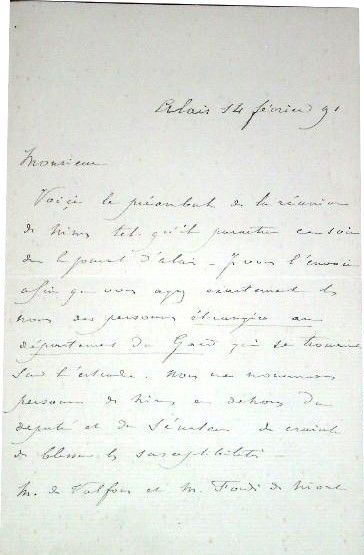 Alais 14 février 91
Monsieur
Voici le préambule de la réunion
de Nimes tel qu'il paraitra ce soir
dans le journal d'Alais - Je vous l'envoie
afin que vous ayez exactement les
noms des personnes étrangères au
département du Gard qui se trouvaient
sur l'estrade. Nous ne nommons
personne de Nimes en dehors du
député et du Sénateur de crainte
de blesser les susceptibilités -
M. de Valfons et M. Fondi de Niort